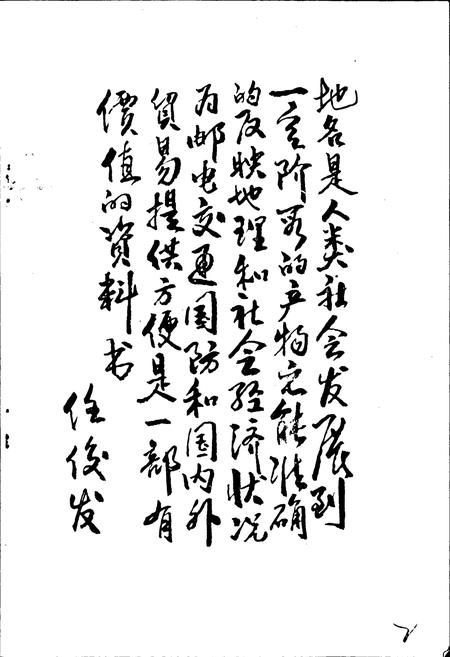 地名是人类社会发展到
一定阶段的产物它能准确
的反映地理和社会经济状况
为邮电交通国防和国内外
貿易提供方便是一部有
價值的資料书
任俊发